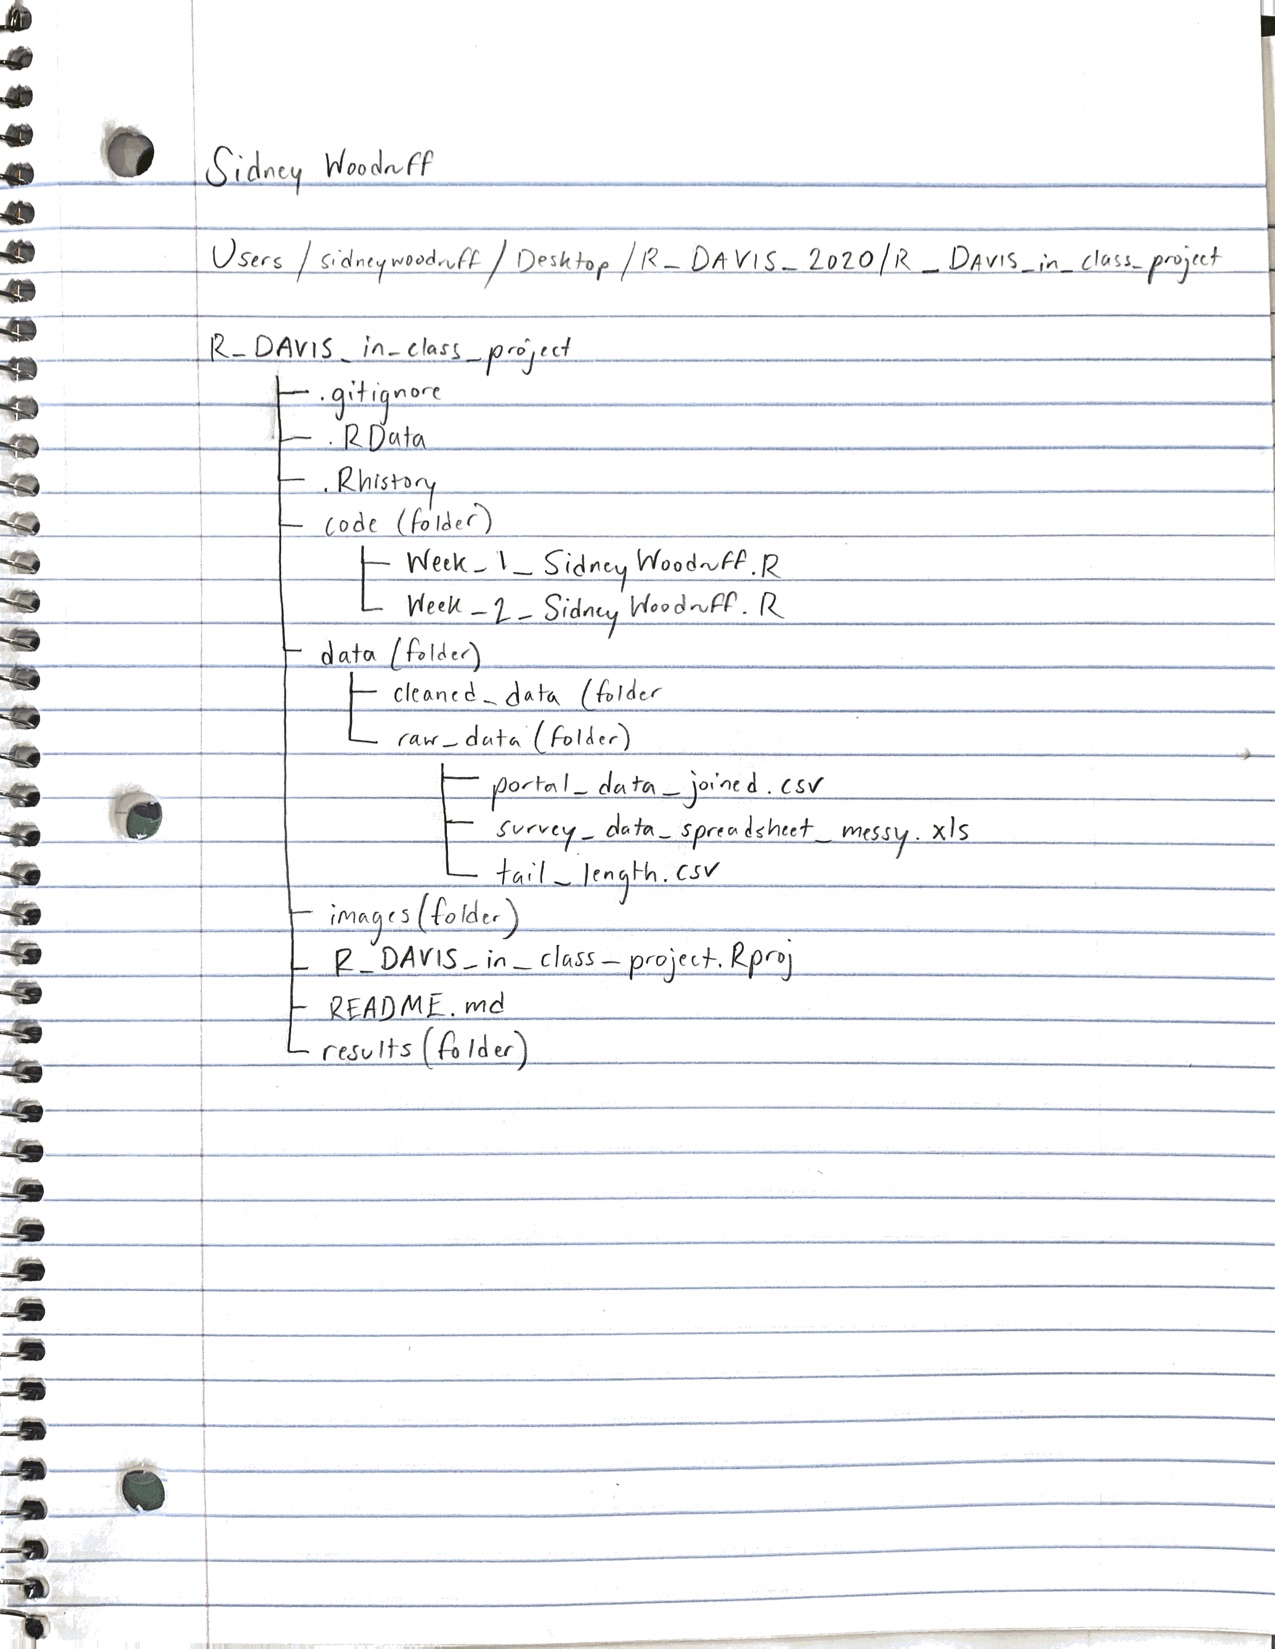 Sidney Woodruff
Users / sidneywoodruff / Desktop / R_DAVIS_2020 / R_DAVIS_in_class_project
R_DAVIS_in_class_project
.gitignore
.RData
.Rhistory
code (folder)
Week_1_SidneyWoodruff.R
Week_2_SidneyWoodruff.R
data (folder)
cleaned_data (folder
raw_data (folder)
portal_data_joined.csv
survey_data_spreadsheet_messy.xls
tail_length.csv
images (folder)
R_DAVIS_in_class_project.Rproj
README.md
results (folder)